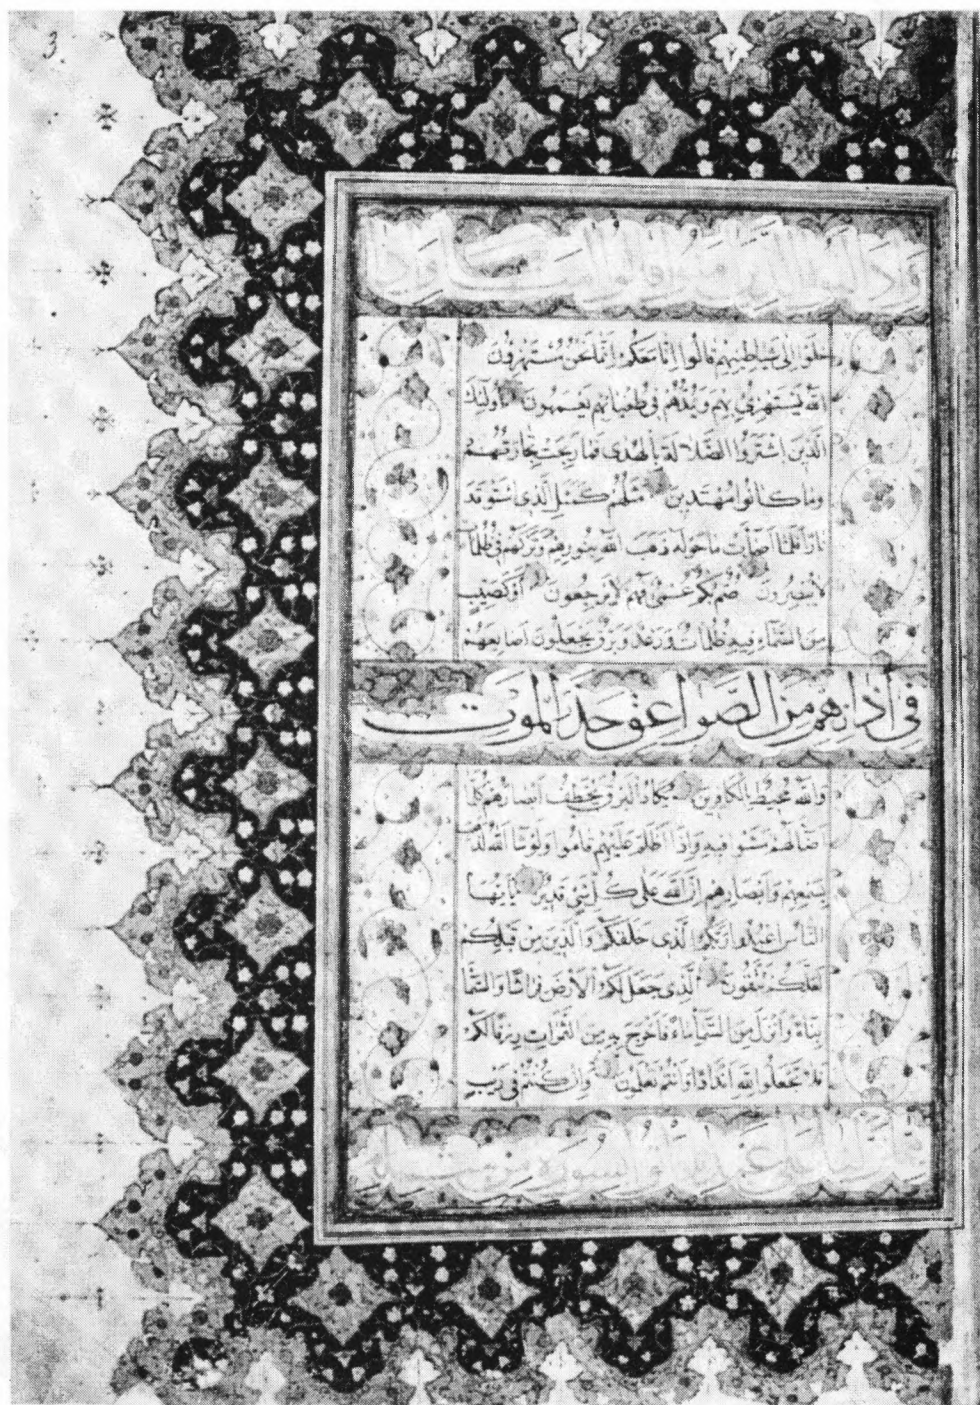 3
وَإِذَا لَقُوا الَّذِينَ آمَنُوا قَالُوا آمَنَّا وَإِذَا
خَلَوْا إِلَى شَيَاطِينِهِمْ قَالُوا إِنَّا مَعَكُمْ إِنَّمَا نَحْنُ مُسْتَهْزِؤُنَ
اَللهُ يَسْتَهْزِئُ بِهِمْ وَيَمُدُّهُمْ فِي طُغْيَانِهِمْ يَعْمَهُونَ أُولَئِكَ
الَّذِينَ اشْتَرَوُا الضَّلَالَةَ بِالْهُدَى فَمَا رَبِحَتْ تِجَارَتُهُمْ
وَمَا كَانُوا مُهْتَدِينَ مَثَلُهُمْ كَمَثَلِ الَّذِي اسْتَوْقَدَ
نَارًا فَلَمَّا أَضَاءَتْ مَا حَوْلَهُ ذَهَبَ اللهُ بِنُورِهِمْ وَتَرَكَهُمْ فِي ظُلُمَاتٍ
لَا يُبْصِرُونَ صُمٌّ بُكْمٌ عُمْيٌ فَهُمْ لَا يَرْجِعُونَ أَوْ كَصَيِّبٍ
مِنَ السَّمَاءِ فِيهِ ظُلُمَاتٌ وَرَعْدٌ وَبَرْقٌ يَجْعَلُونَ أَصَابِعَهُمْ
فِي أَذَانِهِمْ مِنَ الصَّوَاعِقِ حَذَرَ الْمَوْتِ
وَاللهُ مُحِيطٌ بِالْكَافِرِينَ يَكَادُ الْبَرْقُ يَخْطَفُ أَبْصَارَهُمْ كُلَّمَا
أَضَاءَ لَهُمْ مَشَوْا فِيهِ وَإِذَا أَظْلَمَ عَلَيْهِمْ قَامُوا وَلَوْ شَاءَ اللهُ لَذَهَبَ
بِسَمْعِهِمْ وَأَبْصَارِهِمْ إِنَّ اللهَ عَلَى كُلِّ شَيْءٍ قَدِيرٌ يَا أَيُّهَا
النَّاسُ اعْبُدُوا رَبَّكُمُ الَّذِي خَلَقَكُمْ وَالَّذِينَ مِنْ قَبْلِكُمْ
لَعَلَّكُمْ تَتَّقُونَ الَّذِي جَعَلَ لَكُمُ الْأَرْضَ فِرَاشًا وَالسَّمَاءَ
بِنَاءً وَأَنْزَلَ مِنَ السَّمَاءِ مَاءً فَأَخْرَجَ بِهِ مِنَ الثَّمَرَاتِ رِزْقًا لَكُمْ
فَلَا تَجْعَلُوا لِلَّهِ أَنْدَادًا وَأَنْتُمْ تَعْلَمُونَ وَإِنْ كُنْتُمْ فِي رَيْبٍ
مِمَّا نَزَّلْنَا عَلَى عَبْدِنَا فَأْتُوا بِسُورَةٍ مِنْ مِثْلِهِ